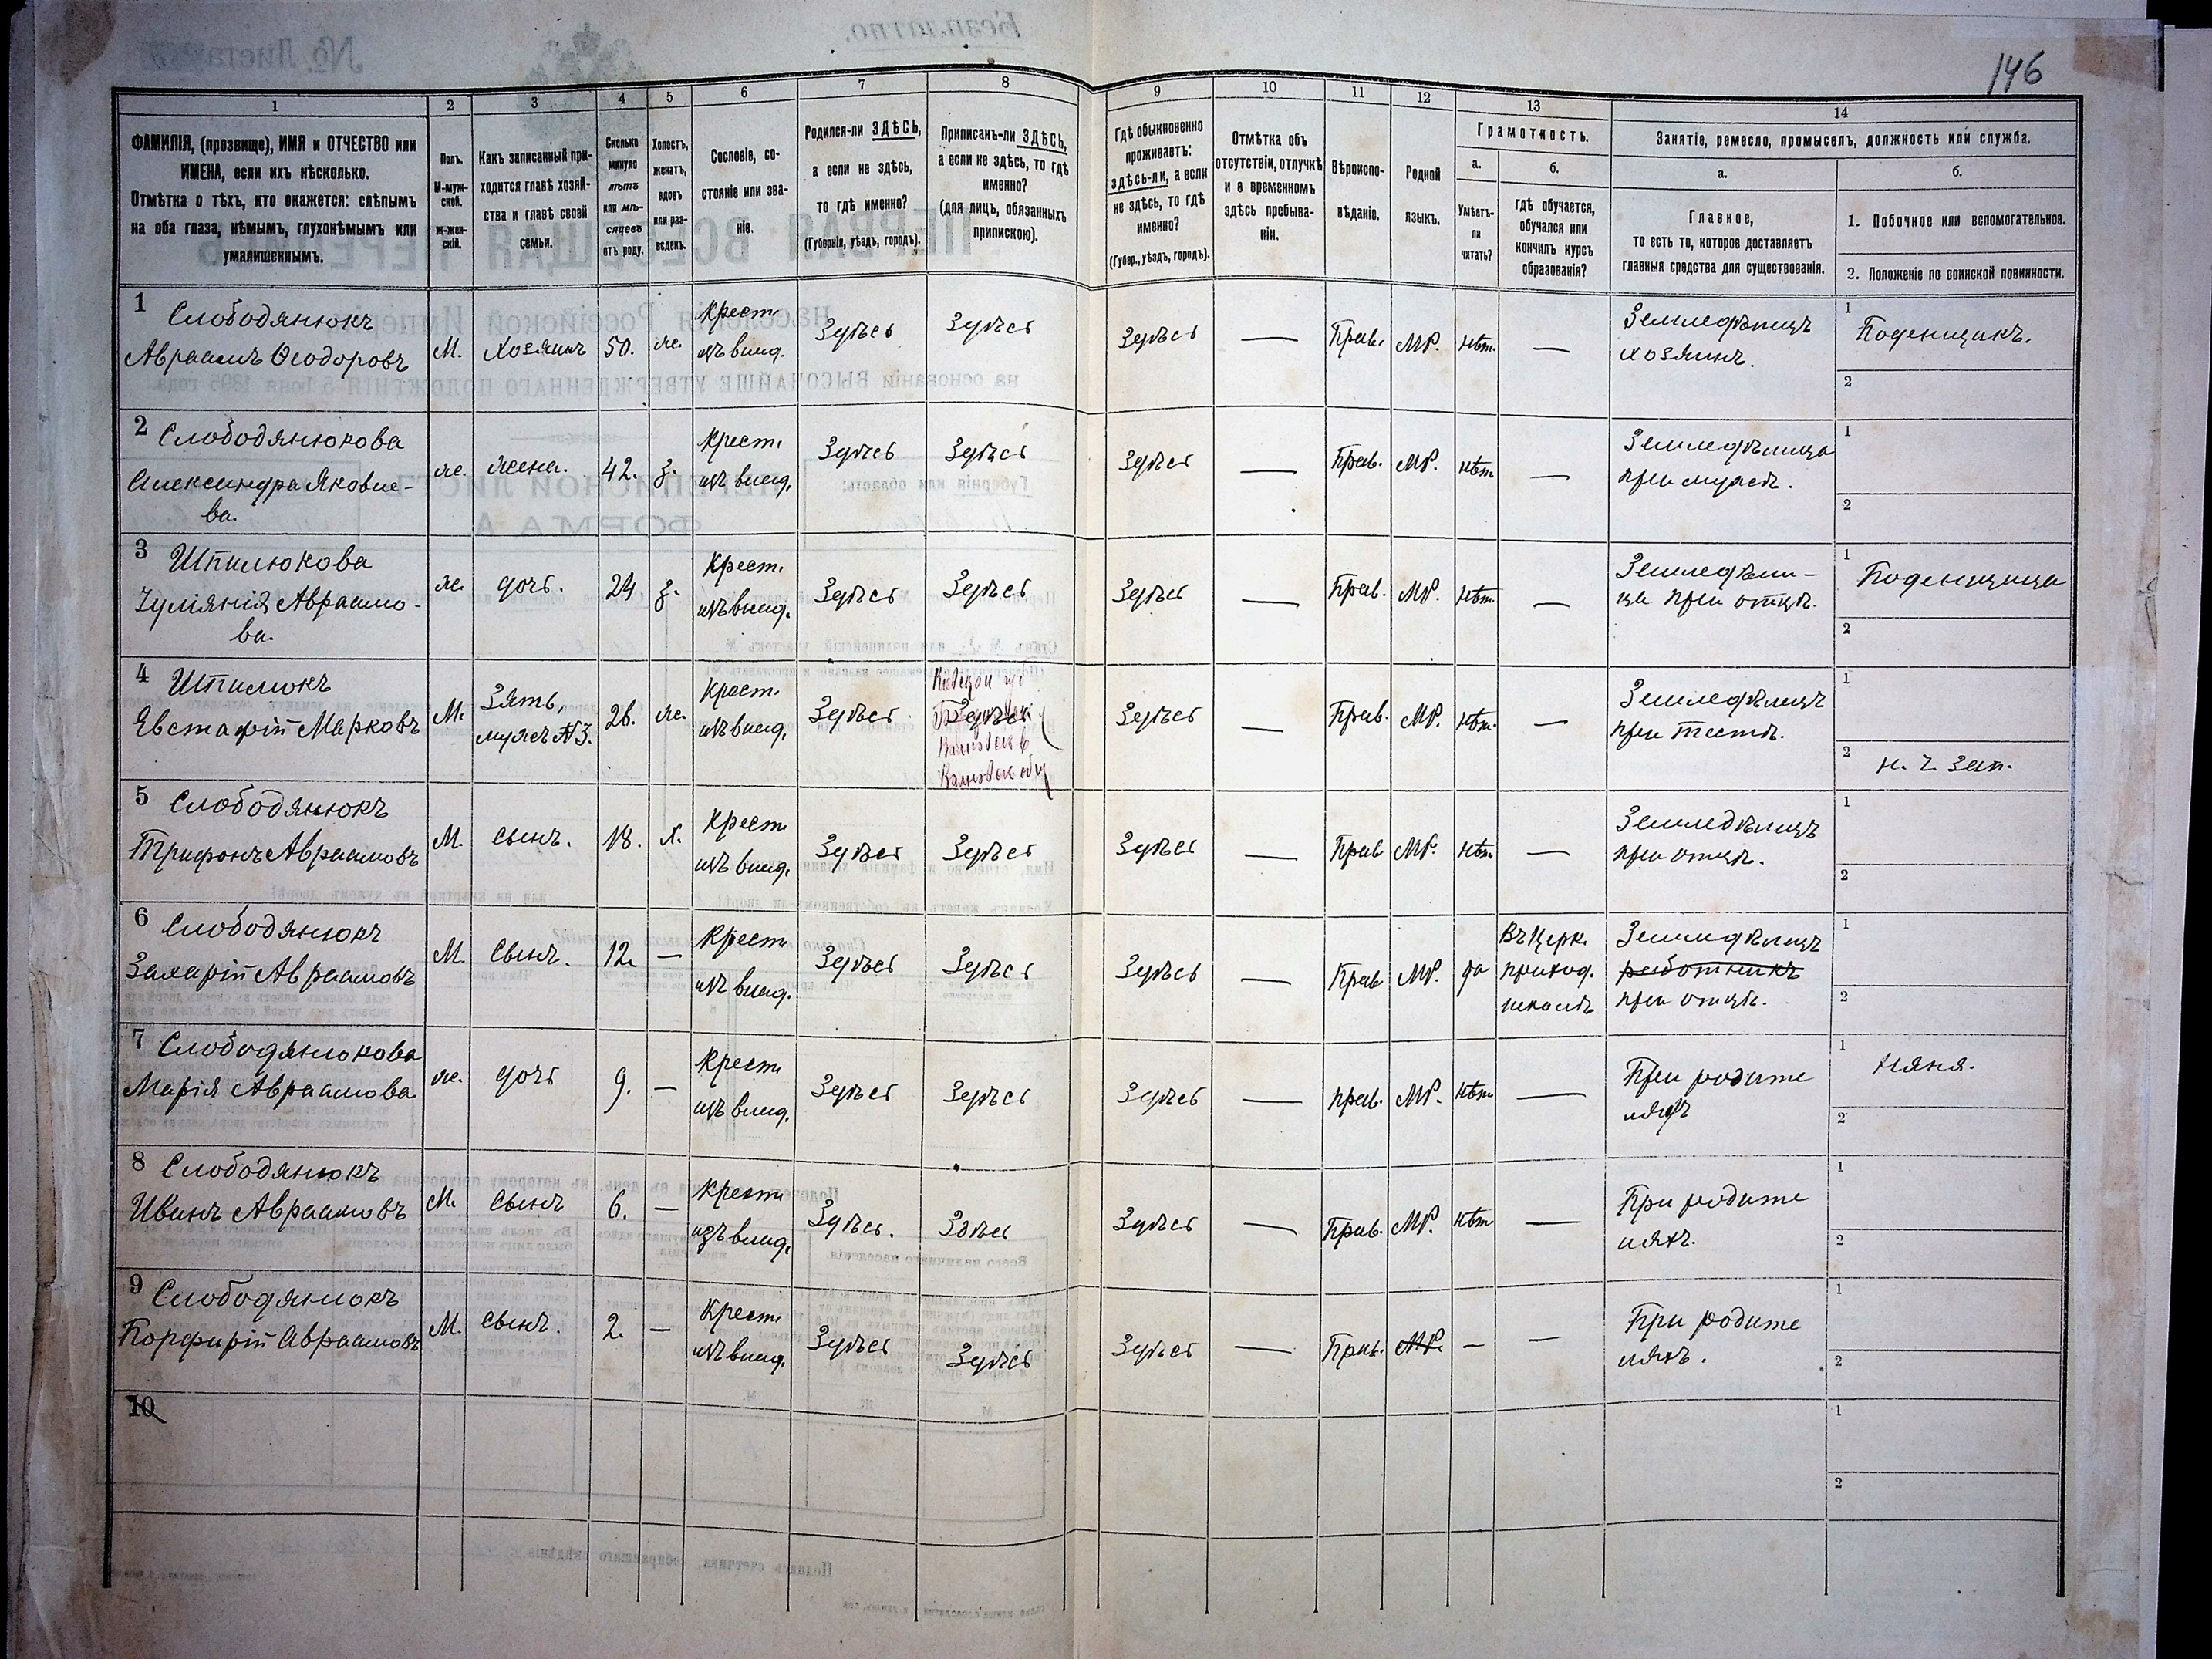 146
1 2 3 4 5 6 7 8 9 10 11 12 13 14
ФАМИЛІЯ, (прозвище), ИМЯ и ОТЧЕСТВО или
ИМЕНА, если ихъ нѣсколько.
Отмѣтка о тѣхъ, кто окажется: слѣпымъ
на оба глаза, нѣмымъ, глухонѣмымъ или
умалишеннымъ.
Полъ.
М-муж-
ской.
Ж-жен-
скій.
Какъ записанный при-
ходится главѣ хозяй-
ства и главѣ своей
семьи.
Сколько
минуло
лѣтъ
или мѣ-
сяцевъ
отъ роду.
Холостъ,
женатъ,
вдовъ
или раз-
веденъ.
Сословіе, со-
стояніе или зва-
ніе.
Родился-ли ЗДѢСЬ,
а если не здѣсь,
то гдѣ именно?
(Губернія, уѣздъ, городъ).
Приписанъ-ли ЗДѢСЬ,
а если не здѣсь, то гдѣ
именно?
(для лицъ, обязанныхъ
припискою).
Гдѣ обыкновенно
проживаетъ:
здѣсь-ли, а если
не здѣсь, то гдѣ
именно?
(Губер., уѣздъ, городъ).
Отмѣтка объ
отсутствіи, отлучкѣ
и о временномъ
здѣсь пребыва-
ніи.
Вѣроиспо-
вѣданіе.
Родной
языкъ.
Грамотность.
а.
Умѣетъ-
ли
читать?
б.
гдѣ обучается,
обучался или
кончилъ курсъ
образованія?
Занятіе, ремесло, промыселъ, должность или служба.
а.
Главное,
то есть то, которое доставляетъ
главныя средства для существованія.
б.
1. Побочное или вспомогательное.
2. Положеніе по воинской повинности.
1 Слободянюкъ
Авраамъ Ѳеодоровъ
М.
Хозяинъ
50.
же.
Крест.
изъ влад.
Здѣсь
Здѣсь
Здѣсь
—
Прав.
МР.
нѣт.
—
Земледѣлецъ
хозяинъ.
1 Поденщикъ.
2
2 Слободянюкова
Александра Яковле-
ва.
же.
жена.
42.
з.
Крест.
изъ влад.
Здѣсь
Здѣсь
Здѣсь
—
Прав.
МР.
нѣт
—
Земледѣлица
при мужѣ.
1
2
3 Шпилюкова
Іуліянія Авраамо-
ва.
же
дочь.
24
з.
Крест.
изъ влад.
Здѣсь
Здѣсь
Здѣсь
—
Прав.
МР.
нѣт.
—
Земледѣли-
ца при отцѣ.
1 Поденщица
2
4 Шпилюкъ
Евстафій Марковъ
М.
Зять,
мужъ №3.
26.
же.
Крест.
изъ влад.
Здѣсь
Здѣсь
—
Прав.
МР.
нѣт.
—
Земледѣлецъ
при тестѣ.
1
2 н. ч. зап.
5 Слободянюкъ
Трифонъ Авраамовъ
М.
сынъ.
18.
х.
Крест.
изъ влад.
Здѣсь
Здѣсь
Здѣсь
—
Прав
МР.
нѣт
—
Земледѣлецъ
при отцѣ.
1
2
6 Слободянюкъ
Захарій Авраамовъ
М.
Сынъ.
12.
—
Крест.
изъ влад.
Здѣсь
Здѣсь
Здѣсь
—
Прав
МР.
да
Въ Церк.
приход.
школѣ
Земледѣлецъ
работникъ
при отцѣ.
1
2
7 Слободянюкова
Марія Авраамова
же.
дочь
9.
—
Крест.
изъ влад.
Здѣсь
Здѣсь
Здѣсь
—
прав.
МР.
нѣт
—
При родите
ляхъ
1 Няня.
2
8 Слободянюкъ
Иванъ Авраамовъ
М.
Сынъ
6.
—
Крест.
изъ влад.
Здѣсь.
Здѣсь
Здѣсь
—
Прав.
МР.
нѣт
—
При родите
ляхъ.
1
2
9 Слободянюкъ
Порфирій Авраамовъ
М.
Сынъ.
2.
—
Крест.
изъ влад.
Здѣсь
Здѣсь
Здѣсь
—
Прав.
МР.
—
—
При родите
ляхъ.
1
2
10
1
2